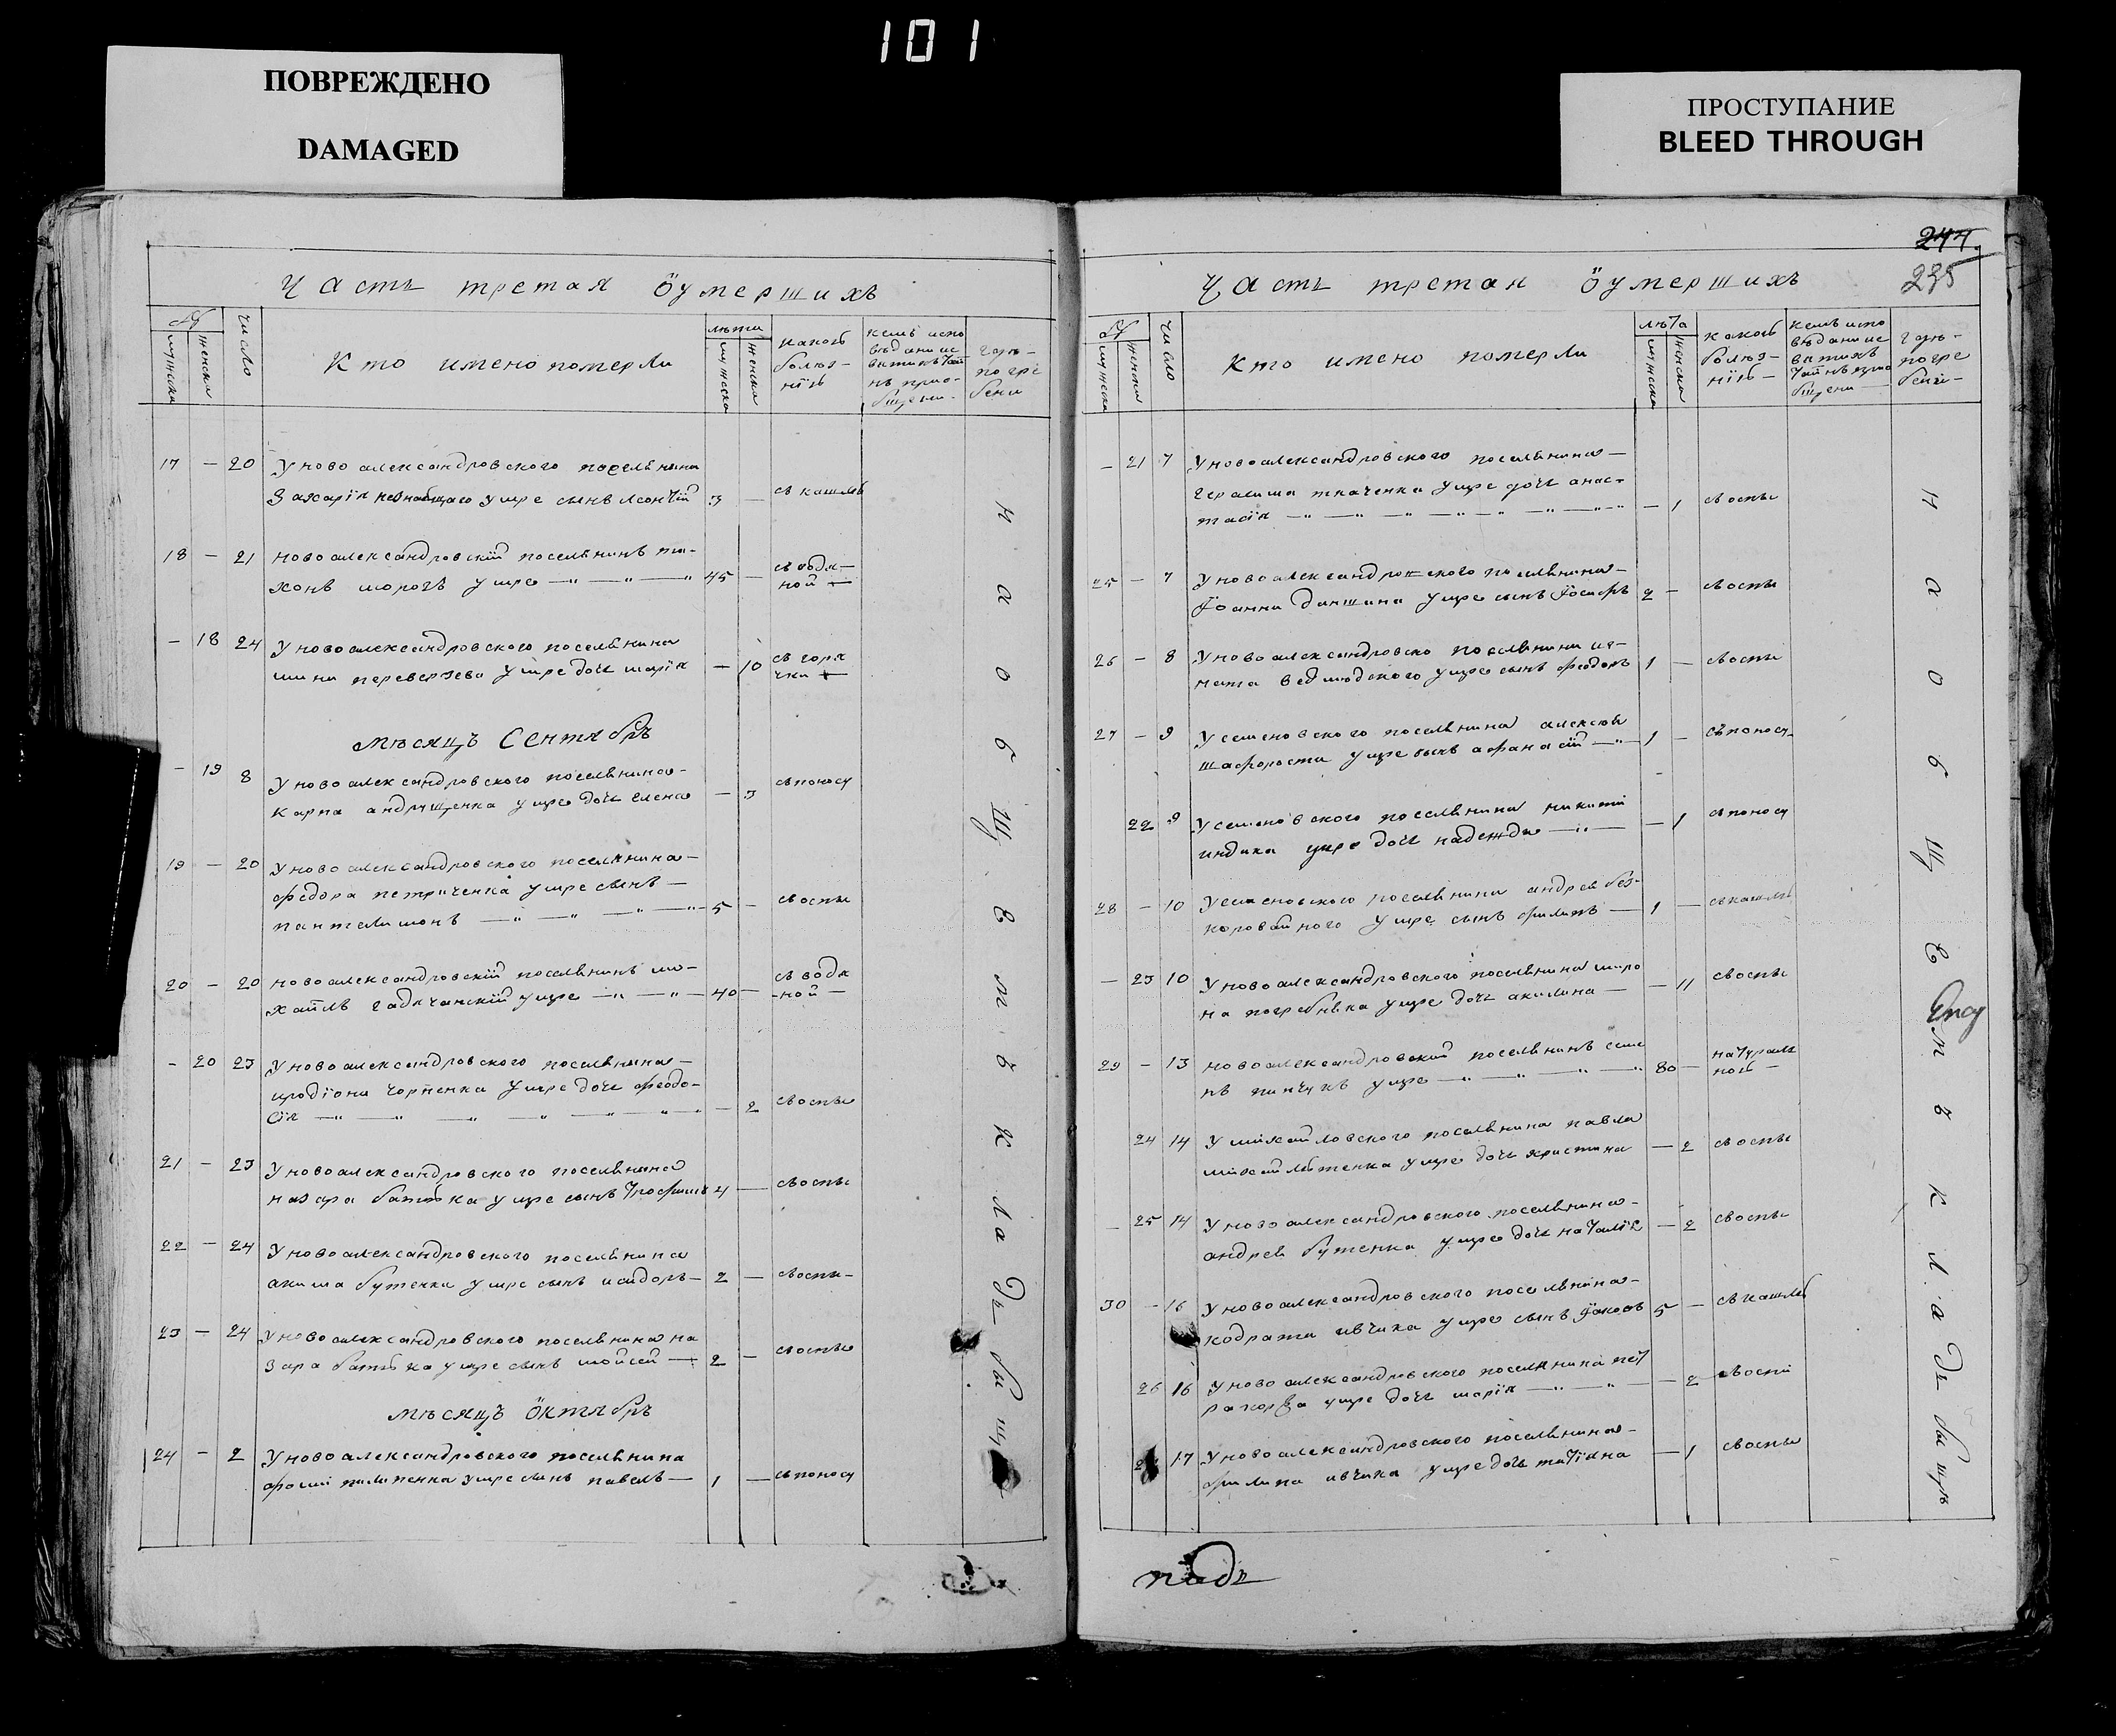 101
ПОВРЕЖДЕНО
DAMAGED
ПРОСТУПАНИЕ
BLEED THROUGH
Часть третая ӧумершихъ
№
мужеска
женска
число
Кто имено померли
лѣта
мужеска
женска
какою
болѣз-
нїю
кемъ испо
вѣдани ис
вятихъ тай
нъ прио-
бщени-
гдѣ-
погре
бени
17 — 20 Уновоалександровского поселянина
Захарїя незнающаго умре сынъ леонтїй 3 — съ кашлю
18 — 21 новоалександровскїй поселянинъ ти-
хонъ морозъ умре — 45 — съ водя-
ной —
— 18 24 Уновоалександровского поселянина
мини переверзева умре дочь марїя — 10 съ горя
чки —
мѣсяцъ Сентябръ
— 19 8 Уновоалександровского поселянина-
карпа андрущенка умре дочь елена — 3 съ поносу
19 — 20 Уновоалександровского поселянина-
федора петриченка умре сынъ —
пантелимонъ — 5 — съ оспы
20 — 20 новоалександровскїй поселянинъ ми-
хайлъ гадячанскїй умре — 40 — съ водя
-ной —
— 20 23 Уновоалександровского поселянина-
иродїона чорненка умре дочь феодо-
сїя — 2 съ оспы
21 — 23 Уновоалександровского поселянина
назара батѣка умре сынъ трофимъ 4 — съ оспы
22 — 24 Уновоалександровского поселянина
акима бутенка умре сынъ исидоръ — 2 — съ оспы-
23 — 24 Уновоалександровского поселянина на
зара батѣка умре сынъ мойсей — 2 — съ оспы
мѣсяцъ ӧктябръ
24 — 2 Уновоалександровского поселянина
фоми пилипенка умре сынъ павелъ — 1 — съ поносу
на общемъ кладъбыщѣ
244
235
Часть третая ӧумершихъ
№
мужеска
женска
число
Кто имено померли
лѣта
мужеска
женска
какою
болѣз-
нїю-
кемъ испо
вѣдани ис
вятихъ
тайнъ прио
бщени —
гдѣ-
погре
бени-
— 21 7 Уновоалександровского поселянина —
герасима ткаченка умре дочь анас-
тасїя — 1 съ оспы
25 — 7 Уновоалександровского поселянина-
Їоанна даншина умре сынъ Їосифъ 2 — съ оспы
26 — 8 Уновоалександровско поселянина иг-
ната ведмодского умре сынъ феодоръ 1 — съ оспы
27 — 9 Усеменовского поселянина алексѣя
шафорости умре сынъ афанасїй — 1 — съ поносу
22 9 Усеменовского поселянина никити
индика умре дочь надежда — 1 съ поносу
28 — 10 Усеменовского поселянина андрея без-
коровайного умре сынъ филипъ — 1 — съ кашлю
— 23 10 Уновоалександровского поселянина миро
на погребняка умре дочь акилина — 11 съ оспы
29 — 13 новоалександровскїй поселянинъ семе
нъ пинчукъ умре — 80 — натураль
ною —
24 14 Умихайловского поселянина павла
михайлютенка умре дочь христина — 2 съ оспы
— 25 14 Уновоалександровского поселянина-
андрея бутенка умре дочь наталїя — 2 съ оспы
30 — 16 Уновоалександровского поселянина-
кодрата ивчика умре сынъ Їаковъ 5 — съ кашлю
26 16 Уновоалександровского поселянина пет
ра умре дочь марїя — 2 съ оспы
17 Уновоалександровского поселянина-
филипа ивчика умре дочь татїяна — 1 съ оспы
на общемъ кладъбыщѣ